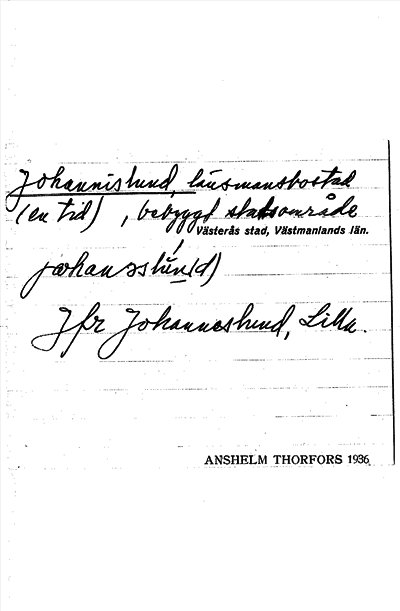 Johannislund, länsmansbostad
(en tid), bebyggt stadsområde
Västerås stad, Västmanlands län.
Jfr Johanneslund, Lilla.
ANSHELM THORFORS 1936